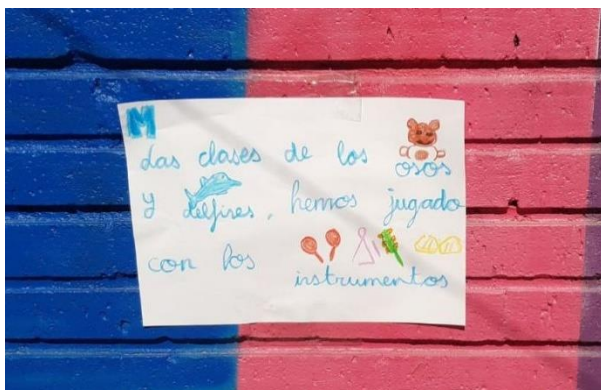 M
Las clases de los osos
y delfines, hemos jugado
con los instrumentos